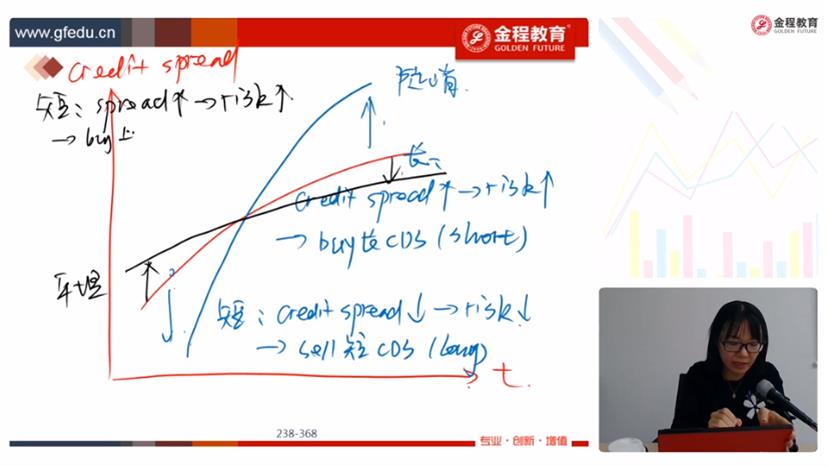 www.gfedu.cn
金程教育
GOLDEN FUTURE
金程教育
GOLDEN FUTURE
credit spread
短: spread↑→risk↑
→ buy
陡峭
长:
credit spread↑→risk↑
→ buy 长 CDS (short)
平坦
短: credit spread↓→risk↓
→ sell 短 CDS (long)
t
238-368
专业·创新·增值